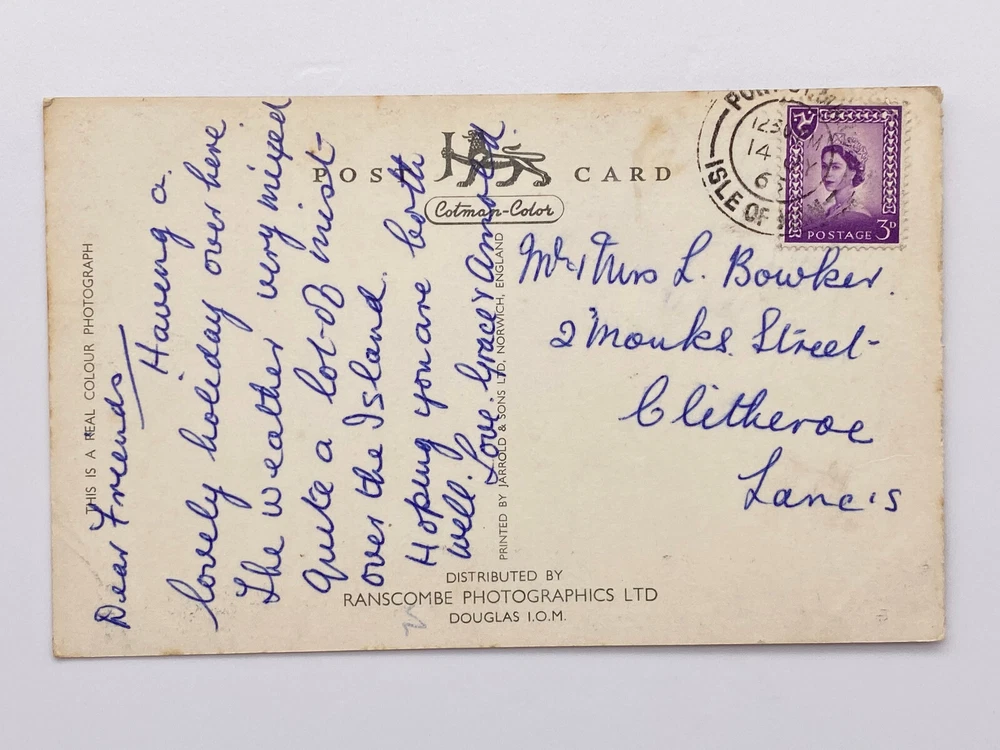 THIS IS A REAL COLOUR PHOTOGRAPH
Dear Friends
Having a
lovely holiday over here.
The weather very mixed
Quite a lot of mist
over the Island.
Hoping you are both
well. Love. Grace & Arnold.
POST CARD
Cotman-Color
PRINTED BY JARROLD & SONS LTD, NORWICH, ENGLAND
ISLE OF
14
POSTAGE 3D
Mr & Mrs L. Bowker.
2 Monks. Street
Clitheroe
Lancs
DISTRIBUTED BY
RANSCOMBE PHOTOGRAPHICS LTD
DOUGLAS I.O.M.